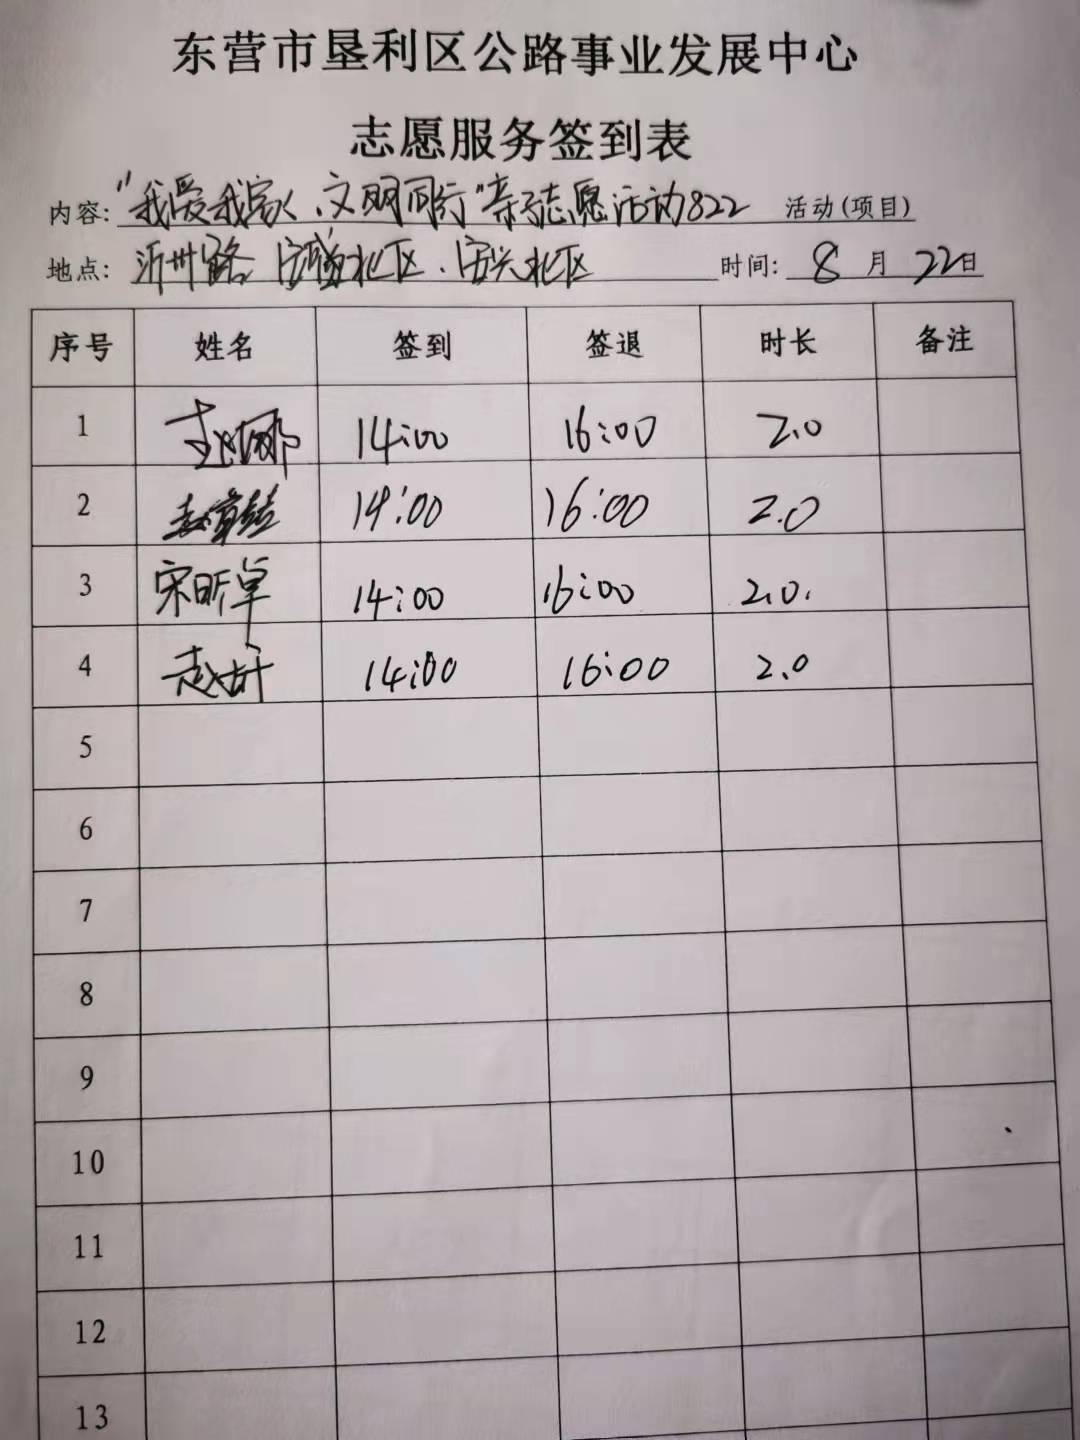 东营市垦利区公路事业发展中心
志愿服务签到表
内容:"我爱我家、文明同行"亲子志愿活动822 活动(项目)
地点:沂州路、盛北区、兴北区 时间:8月22日
序号 姓名 签到 签退 时长 备注
1 赵娜 14:00 16:00 2.0
2 14:00 16:00 2.0
3 宋昕卓 14:00 16:00 2.0.
4 赵 14:00 16:00 2.0
5
6
7
8
9
10
11
12
13